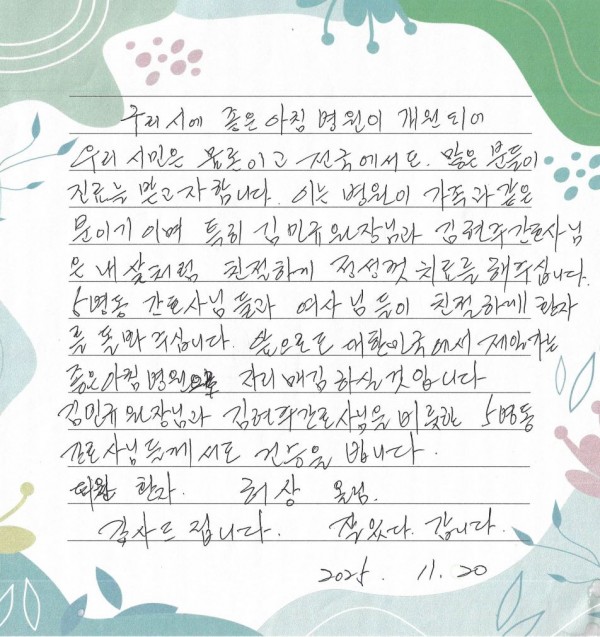 우리시에 좋은아침 병원이 개원되어
우리 시민은 물론이고 전국에서도. 많은 분들이
진료를 받고자 합니다. 이는 병원이 가족과 같은
분이기 이며 특히 김민규원장님과 김현주간호사님
은 내 살처럼 친절하게 정성껏 치료를 해주십니다.
5병동 간호사님들과 여사님들이 친절하게 환자
를 돌봐 주십니다. 앞으로도 대한민국에서 제일가는
좋은아침병원으로 자리매김하실것입니다
김민규원장님과 김현주간호사님을 비롯한 5병동
간호사님들께서도 건승을 빕니다.
환자. 올림.
감사드립니다. 잘있다. 갑니다.
2025. 11. 20